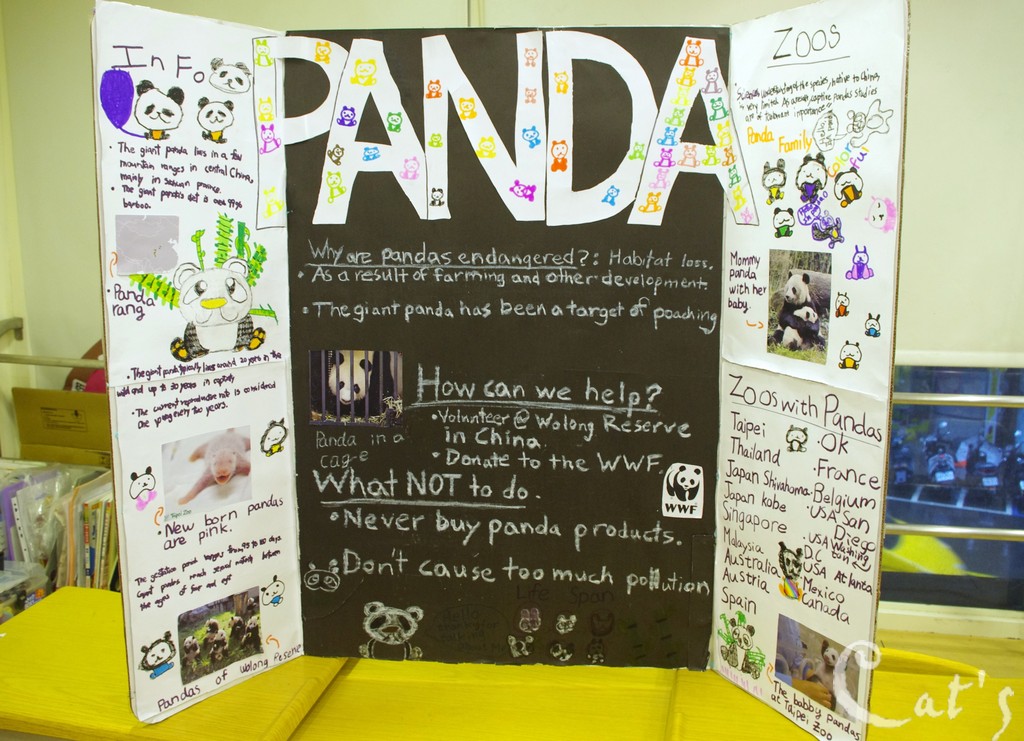 PANDA
Info
• The giant panda lives in a few
mountain ranges in central China,
mainly in
• The giant panda's diet is over 99%
bamboo.
• Panda
rang
• The giant panda typically lives around 20 years in the
wild and up to 30 years in captivity
• The current reproductive rate is considered
one young every two years.
© Taipei Zoo
New born pandas
are pink.
The gestation period ranges from 95 to 160 days
Giant pandas reach sexual maturity between
the ages of four and eight
Pandas of Wolong Reserve
Why are pandas endangered?: Habitat loss.
• As a result of farming and other development.
• The giant panda has been a target of poaching
Panda in a
cage
How can we help?
• Volunteer @ Wolong Reserve
in China.
• Donate to the WWF.
WWF
What NOT to do.
• Never buy panda products.
• Don't cause too much pollution
Hello
Life Span
Zoos
understanding of the species, native to China,
is very limited. As a result, captive pandas studies
are of paramount importance
Panda Family
Colorful
Mommy
panda
with her
baby.
Zoos with Pandas
Taipei
Thailand
Japan Shirahama
Japan kobe
Singapore
Malaysia
Australia
Austria
Spain
• UK
• France
• Belgium
• USA San
Diego
• USA Washing
D.C
• USA Atlanta
• Mexico
Canada
The babby pandas
at Taipei Zoo
Cat's